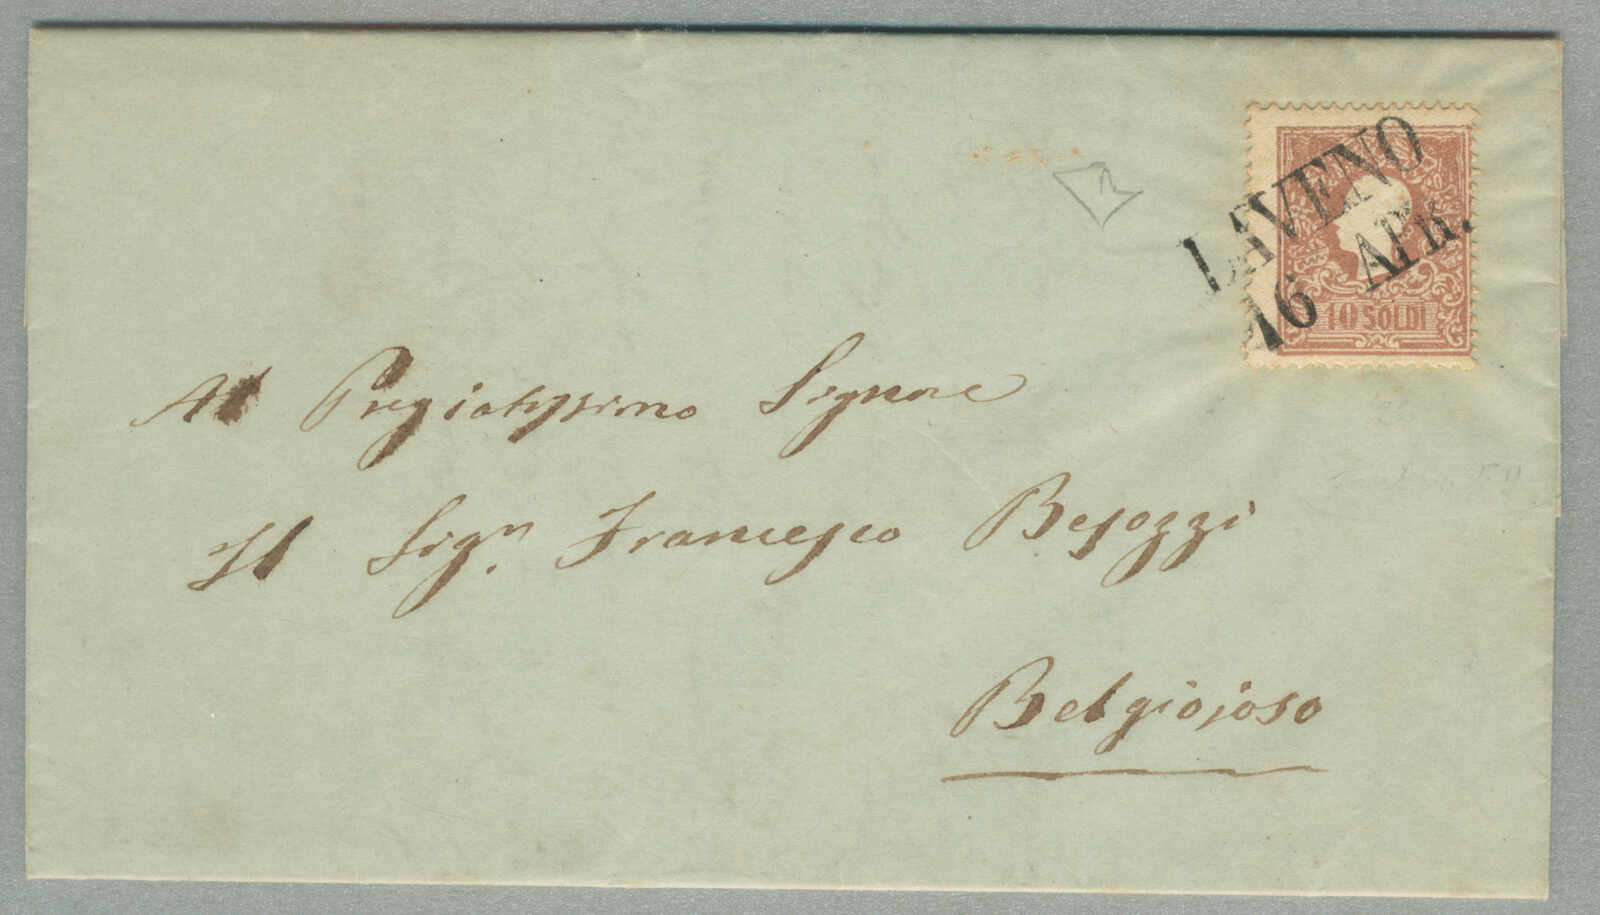 LAVENO
16 APR.
10 SOLDI
Al Pregiatissimo Signore
Il Sigʳ. Francesco Besozzi
Belgiojoso